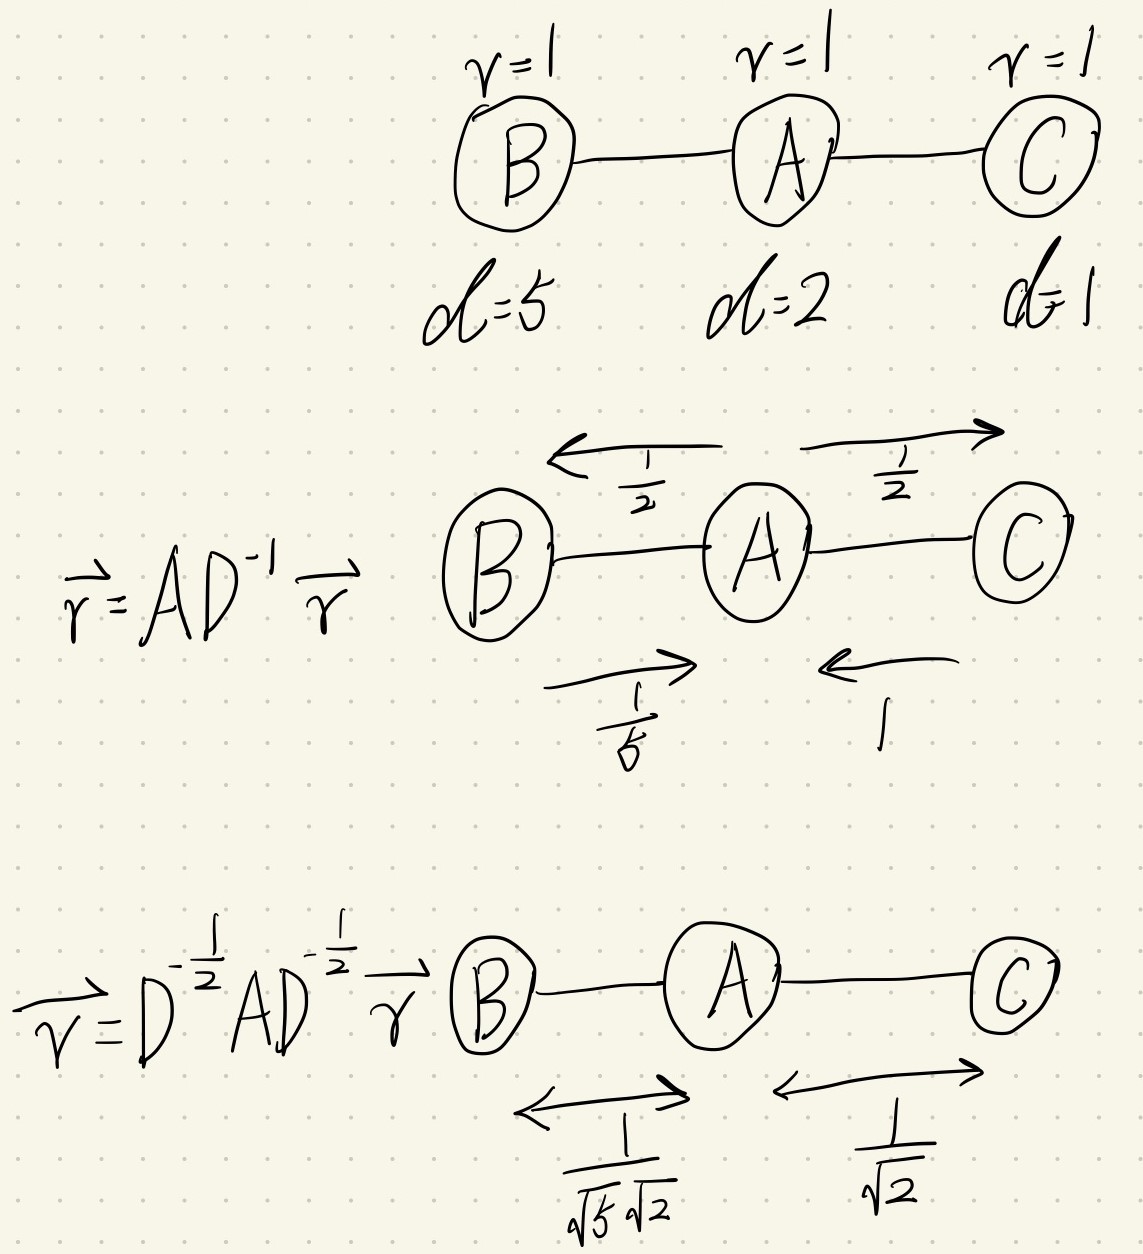 r=1 r=1 r=1
B A C
d=5 d=2 d=1
1/2 1/2
r⃗ = AD^-1 r⃗ B A C
1/5 1
r⃗ = D^-1/2 AD^-1/2 r⃗ B A C
1/√5√2 1/√2